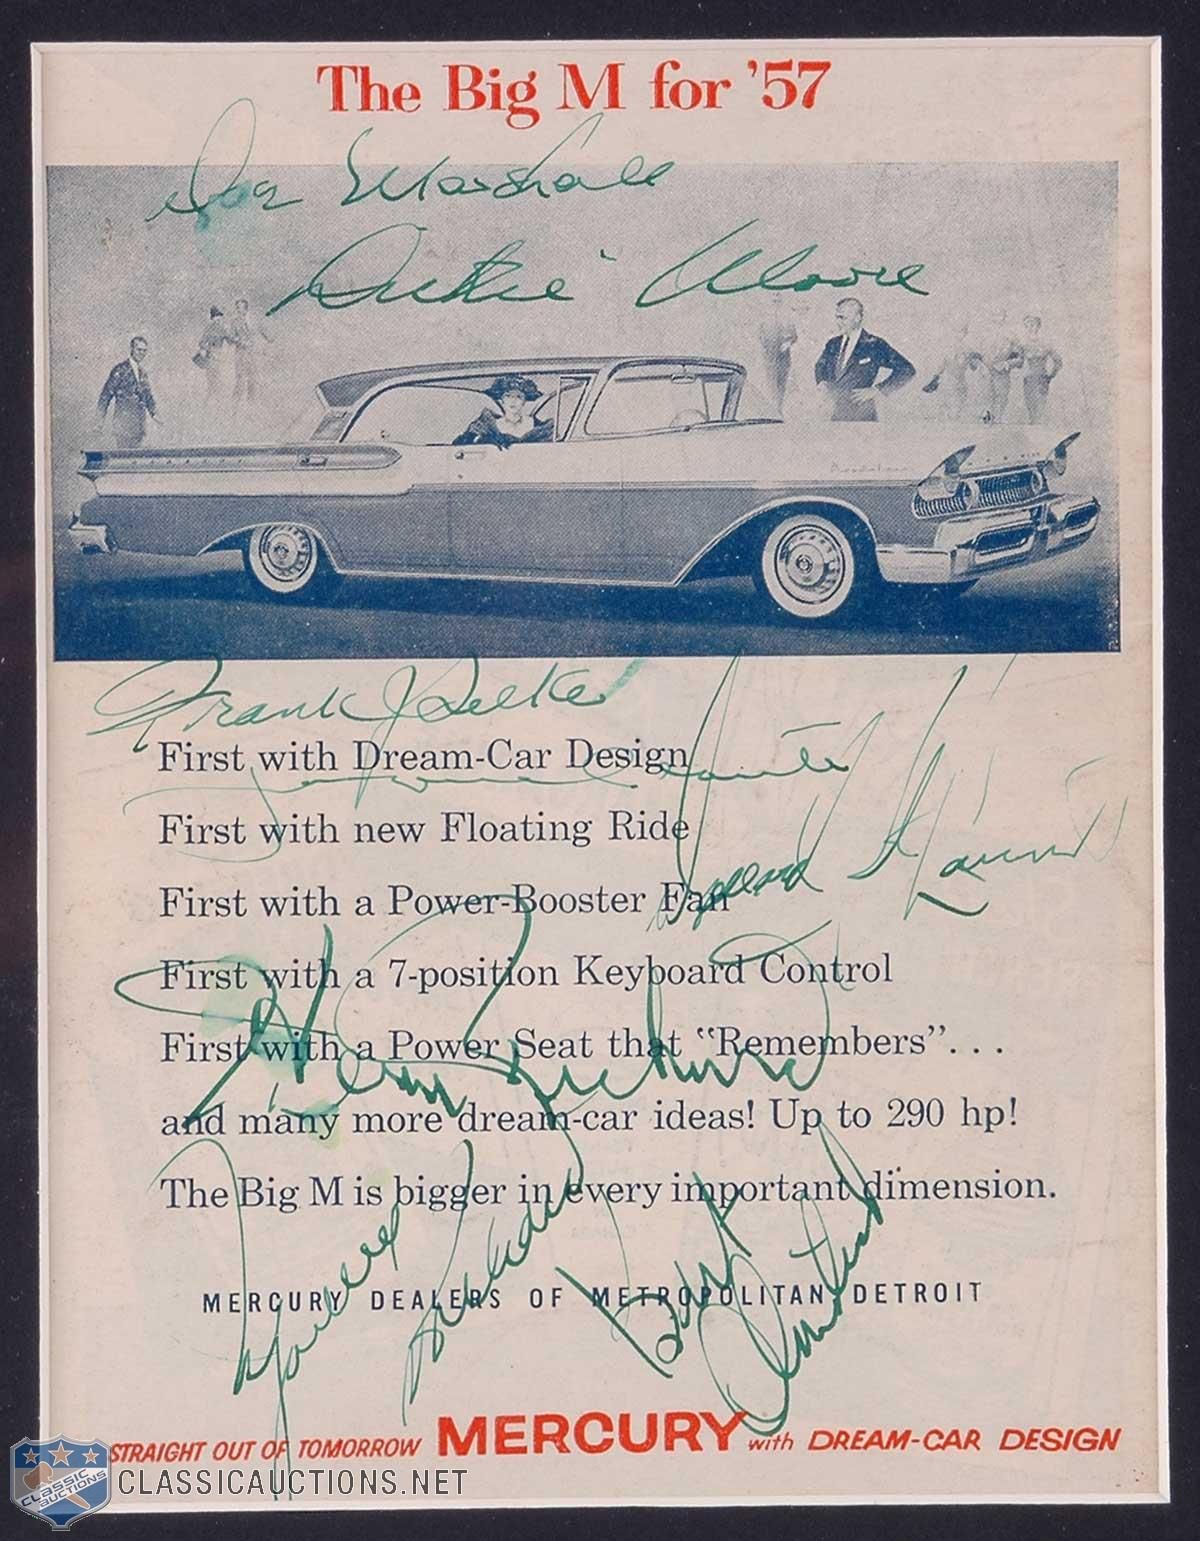 The Big M for '57
Don Marshall
Dickie Moore
Frank J Selke
First with Dream-Car Design
First with new Floating Ride
First with a Power-Booster Fan
First with a 7-position Keyboard Control
First with a Power Seat that "Remembers"...
Henri Richard
and many more dream-car ideas! Up to 290 hp!
The Big M is bigger in every important dimension.
Bert Olmstead
MERCURY DEALERS OF METROPOLITAN DETROIT
STRAIGHT OUT OF TOMORROW MERCURY with DREAM-CAR DESIGN
CLASSIC AUCTIONS
CLASSICAUCTIONS.NET